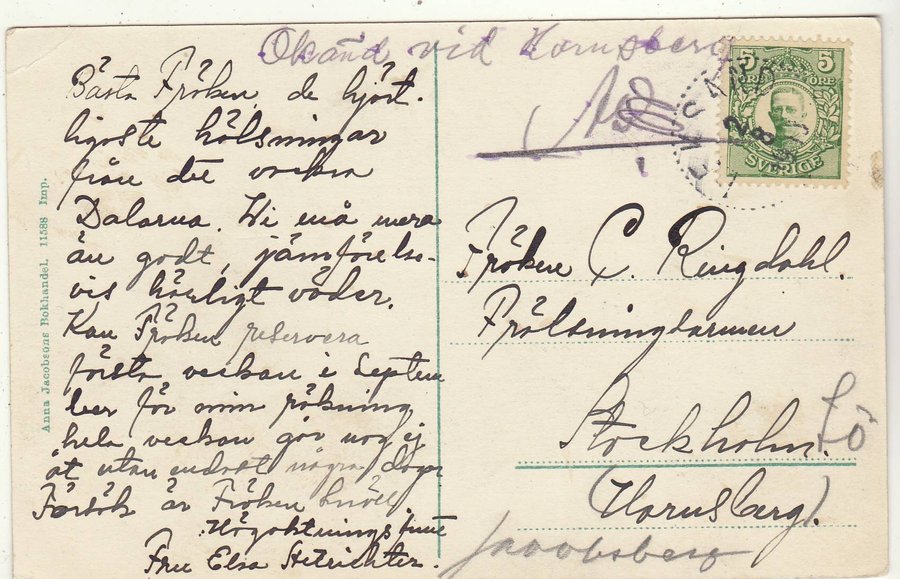 Okänd vid Hornsberg
Bästa Fröken, de hjärt-
ligaste hälsningar
från det vackra
Dalarna. Vi må mera
än godt, jämförelse-
vis härligt väder.
Kan Fröken reservera
första veckan i Septem
ber för min räkning,
hela veckan går nog ej
åt utan endast några dagar
Försök är Fröken snäll
Högaktningsfullt
Fru Elsa
Anna Jacobsons Bokhandel. 11588 Imp.
5 5
ÖRE ÖRE
SVERIGE
Fröken C. Ringdahl.
Frälsningsarmen
Stockholm.
(Hornsberg).
Jacobsberg